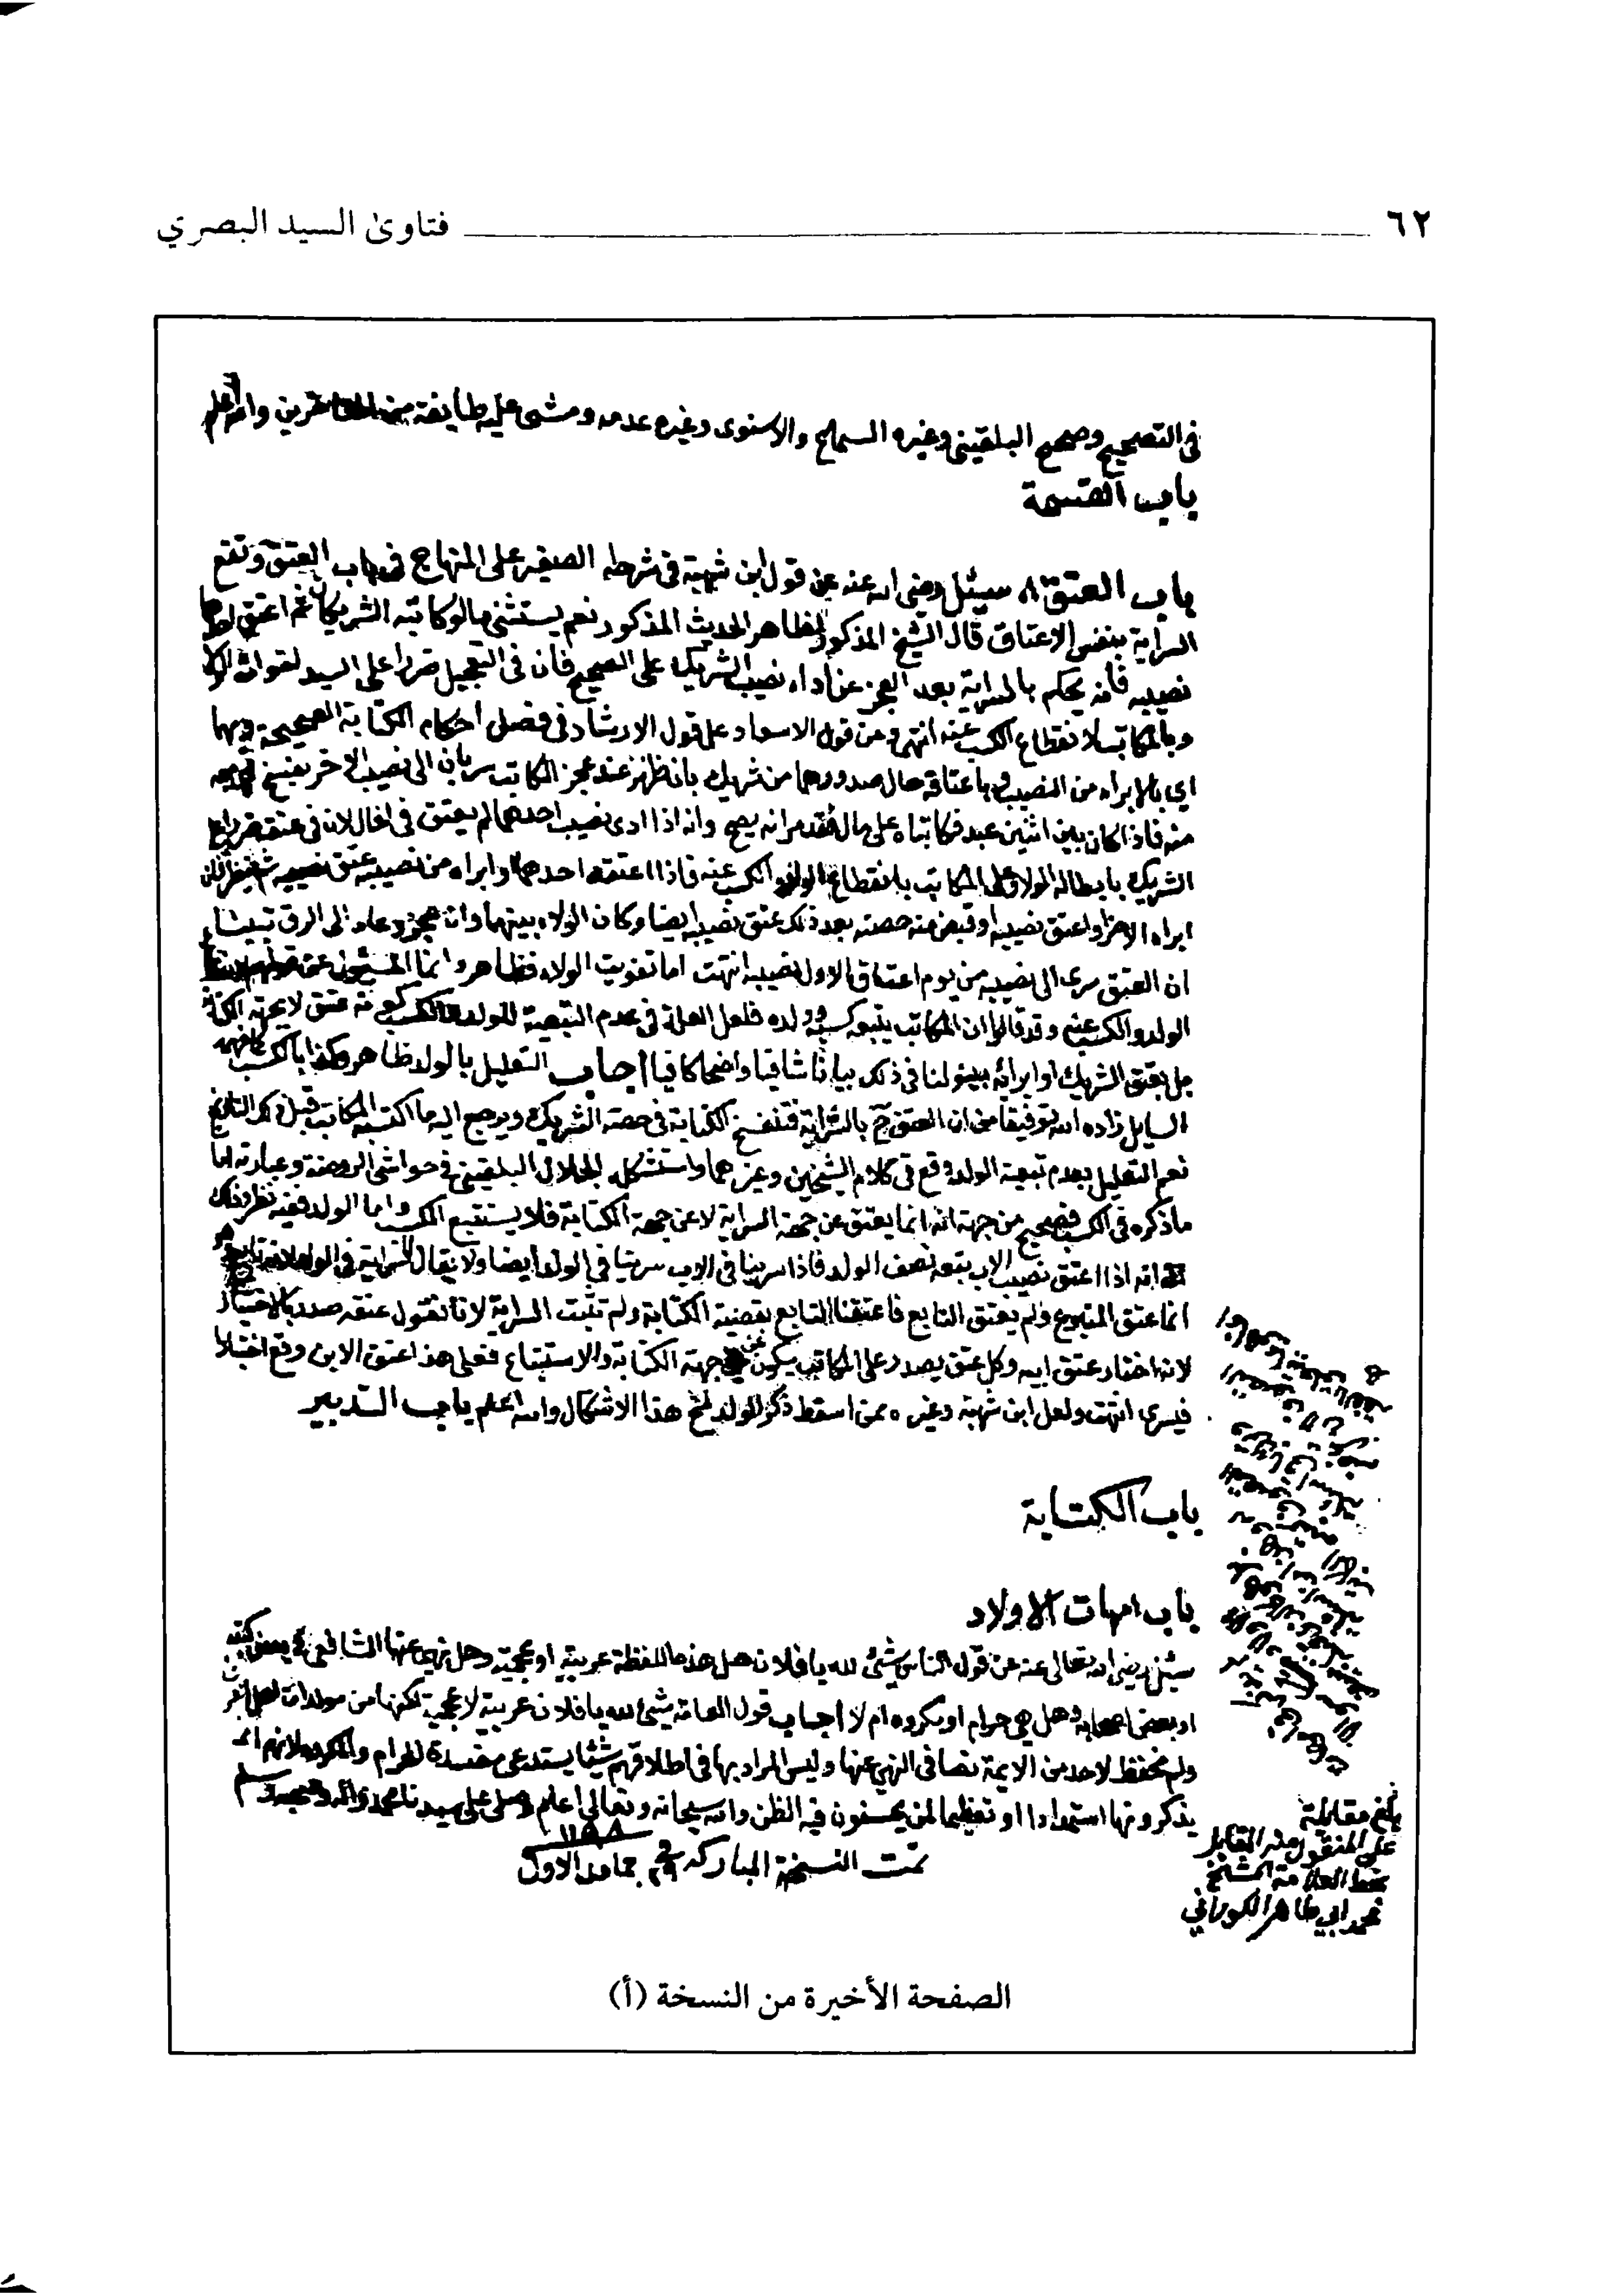 ٦٢ فتاوىٰ السيد البصري
في التصحيح وصحح البلقيني وغيره السماع والاسنوى وغيره عدمه ومشى عليه طايفة من المتاخرين والله اعلم
باب القسمة
باب العتق سئل رضي الله عنه عن قول ابن شهبة في شرحه الصغير على المنهاج في باب العتق وتقع
السراية بنفس الاعتاق قال الشيخ المذكور لظاهر الحديث المذكور نعم يستثنى مالو كاتبه الشريكان ثم اعتق احدهما
نصيبه فانه يحكم بالسراية بعد العجز عن اداء نصيب الشريك على الصحيح فان في التعجيل ضررا على السيد لفوات الولاء
وبالمكاتب لانقطاع الكسب عنه انتهى ومن قول الاسعاد على قول الارشاد في فصل احكام الكتابة الصحيحة وبهما
اي بالابراء من النصيب وباعتاقه حال صدورهما من شريك بان ظهر عند عجز المكاتب سريان الى نصيب الاخر بفسخ
منه فاذا كان بين اثنين عبد فكاتباه على مال فقد مر انه يصح وانه اذا ادى نصيب احدهما لم يعتق في الحال لان في عتقه ضررا على
الشريك بابطاله الولاء وعلى المكاتب بانقطاع الولد والكسب عنه فاذا اعتقه احدهما وابراه من نصيبه عتق نصيبه ثم ينظر فان
ابراه الاخر او اعتق نصيبه او قبض منه حصته بعد ذلك عتق نصيبه ايضا وكان الولاء بينهما وان عجز وعاد الى الرق تبينا
ان العتق سرى الى نصيبه من يوم اعتاق الاول نصيبه انتهت اما تفويت الولاء فظاهر وانما المسئول عنه
الولد والكسب عنه وقد قالوا ان المكاتب يتبعه كسبه وولده فلعل العلة في عدم التبعية للولد والكسب كونه عتق لا بجهة الكتابة
بل بعتق الشريك او ابرائه بينوا لنا في ذلك بيانا شافيا واضحا كافيا اجاب التعليل بالولد ظاهر وكذا بالكسب كما فهمه
السايل زاده الله توفيقا من ان العتق ثم بالسراية فتنفسخ الكتابة في حصة الشريك ويرجع اليه ما اكتسبه المكاتب قبل
نعم التعليل بعدم تبعية الولد وقع في كلام الشيخين وغيرهما واستشكله الجلال البلقيني في حواشي الروضة وعبارته اما
ما ذكره في الكسب فصحيح من جهة انه انما يعتق عن جهة السراية لا عن جهة الكتابة فلا يستتبع الكسب واما الولد ففيه نظر وذلك
انه اذا اعتق نصيب الاب تبعه نصف الولد فاذا سرينا في الاب سرينا في الولد ايضا ولا يقال السراية في الولد
انما عتق المتبوع ولم يعتق التابع فاعتقنا التابع بقضية الكتابة ولم تثبت السراية لانا نقول عتقه صدر بالاختيار
لانه اختار عتق ابيه وكل عتق يصدر على المكاتب يكون عن جهة الكتابة والاستتباع فعلى هذا عتق الابن وقع اختيارا
فيسرى انتهت ولعل ابن شهبة وغيره ممن اسقط ذكر الولد لمح هذا الاشكال والله اعلم باب التدبير
باب الكتابة
باب امهات الاولاد
سئل رضي الله تعالى عنه عن قول الناس شئ لله يا فلان هل هذه اللفظة عربية او عجمية وهل نهى عنها الشافعي في بعض كتبه
او بعض اصحابه وهل هي حرام او مكروه ام لا اجاب قول العامة شئ لله يا فلان عربية لا عجمية لكنها من مولدات اهل العرف
ولم يحفظ لاحد من الايمة نصا في النهي عنها وليس المراد بها في اطلاقهم شيئا يستدعي مفسدة الحرام والمكروه لانهم انما
يذكرونها استمدادا او تعظيما لمن يحسنون فيه الظن والله سبحانه وتعالى اعلم وصلى على سيدنا محمد وآله وصحبه وسلم
تمت النسخة المباركه جماد الاول
بلغ مقابلة
على المنقول منه المقابل
بخط العلامة الشيخ
محمد ابي طاهر الكوراني
الصفحة الأخيرة من النسخة (أ)